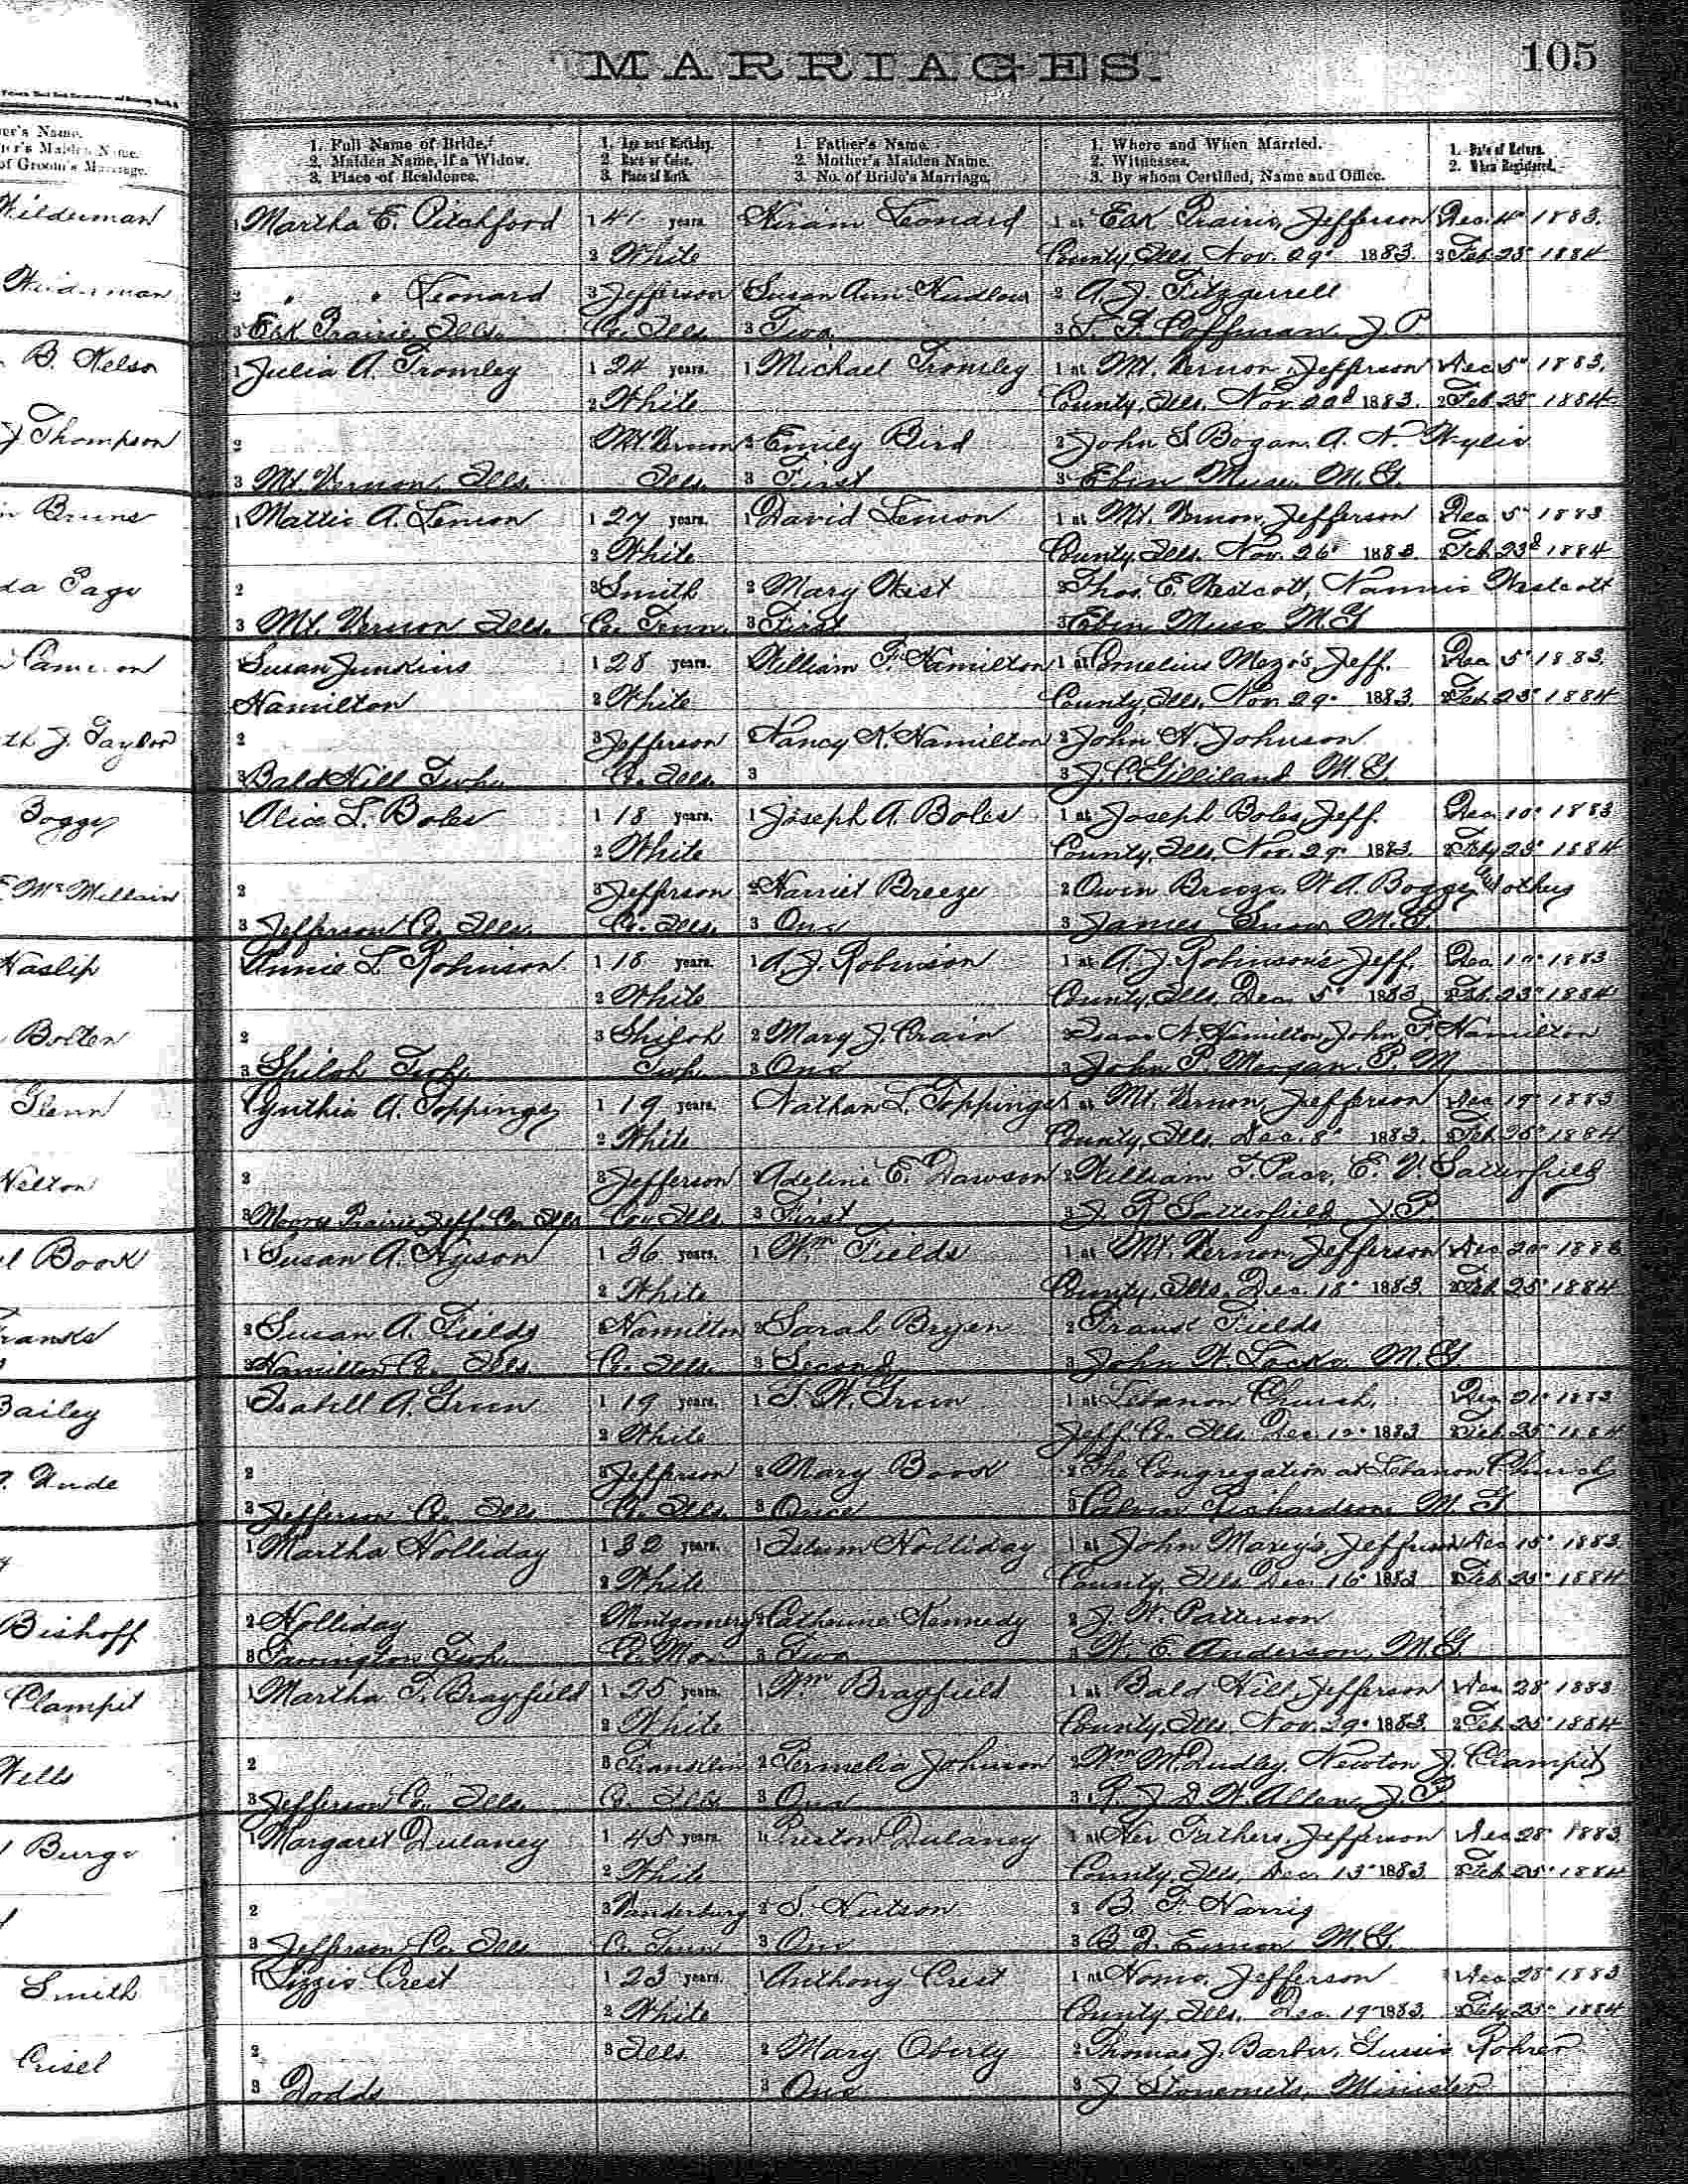 MARRIAGES.
105
1. Full Name of Bride. 1. Age next Birthday. 1. Father's Name. 1. Where and When Married. 1. Date of Return.
2. Maiden Name, if a Widow. 2. Race or Color. 2. Mother's Maiden Name. 2. Witnesses. 2. When Registered.
3. Place of Residence. 3. Place of Birth. 3. No. of Bride's Marriage. 3. By whom Certified, Name and Office.
er's Name.
er's Maiden Name.
of Groom's Marriage.
Wilderman 1 Martha E. Pitchford 1 41 years. Hiram Leonard 1 at Elk Prairie, Jefferson Dec. 4" 1883.
2 White County, Ills. Nov. 29" 1883. 2 Feb 23" 1884
2 " " Leonard 3 Jefferson Susan Ann 2 A. J. Fitzgerrell
3 Elk Prairie, Ills. Co. Ills. 3 Two 3 Coffman J. P.
B. Nelson 1 Julia A. Tromley 1 24 years. 1 Michael Tromley 1 at Mt. Vernon, Jefferson Dec. 5" 1883.
2 White County, Ills. Nov. 22d 1883. 2 Feb 23" 1884
J Thompson 2 Mt. Vernon 2 Emily Bird 2 John S. Bogan, A. N. Wylie
3 Mt. Vernon, Ills. Ills. 3 First 3 Eben Muse, M. G.
Bruns 1 Mattie A. Lemon 1 27 years. 1 David Lemon 1 at Mt. Vernon, Jefferson Dec. 5" 1883
2 White County, Ills. Nov. 26" 1883. 2 Feb 23d 1884
da Page 2 3 Smith 2 Mary Wist 2 Thos. E. Westcott, Nannie Westcott
3 Mt. Vernon Ills. Co. Tenn. 3 First 3 Eben Muse M. G.
Cameron 1 Susan Junkins 1 28 years. William F. Hamilton 1 at Cornelius Mezo's, Jeff. Dec 5" 1883.
Hamilton 2 White County, Ills. Nov. 29" 1883. 2 Feb 23" 1884
th J. Taylor 2 3 Jefferson Nancy N. Hamilton 2 John H. Johnson
3 Bald Hill Twp. Co. Ills. 3 3 J. C. Gilliland M. G.
Boggs 1 Alice L. Boles 1 18 years. 1 Joseph A. Boles 1 at Joseph Boles, Jeff. Dec. 10" 1883
2 White County, Ills. Nov. 29" 1883. 2 Feby 23" 1884
E McMillain 2 3 Jefferson 2 Harriet Breeze 2 Owen Breeze, W. A. Boggs, & others
3 Jefferson Co. Ills. Co. Ills. 3 One 3 James Snow M. G.
Haslip Annie L. Robinson 1 18 years. 1 A. J. Robinson 1 at A. J. Robinson's Jeff. Dec. 1883
2 White County, Ills. Dec. 5" 1883 2 Feb. 23" 1884
Bolten 2 3 Shiloh 2 Mary J. Crain 2 Isaac N. Hamilton, John F. Hamilton
3 Shiloh Twp. Twp. 3 One 3 John P. Morgan, P. M.
Glenn Cynthia A. Toppings 1 19 years. Nathan L. Toppings 1 at Mt. Vernon, Jefferson Dec 19" 1883
2 White County, Ills. Dec. 8" 1883. 2 Feb 25" 1884
Nelton 2 3 Jefferson 2 Adeline E. Dawson 2 William T. Pace, E. V. Satterfield
3 Moores Prairie, Jeff. Co. Ills Co. Ills. 3 First 3 J. R. Satterfield J. P.
l Book 1 Susan A. Hyson 1 36 years. 1 Wm Fields 1 at Mt. Vernon, Jefferson Dec. 20" 1883
2 White County, Ills. Dec. 18" 1883. 2 Feb. 25" 1884
Franks 2 Susan A. Fields Hamilton 2 Sarah Bryen 2 Fields
3 Hamilton Co. Ills. Co. Ills. 3 Second 3 John W. Locke M. G.
Bailey 1 Isabell A. Green 1 19 years. 1 Green 1 at Lebanon Church, Dec 21" 1883
2 White Jeff. Co. Ills. Dec. 1883 2 Feb. 25" 1884
Unde 2 3 Jefferson 2 Mary Book 2 The Congregation at Lebanon Church
3 Jefferson Co. Ills Co. Ills. 3 Once 3 Calvin Richardson M. G.
1 Martha Holliday 1 32 years. 1 Holliday 1 at John Maxey's, Jefferson Dec 15" 1883.
2 White County, Ills Dec. 16" 1883 2 Feb. 25" 1884
Bishoff 2 Holliday Montgomery 2 Catherine Kennedy 2 J. W. Patterson
3 Farrington Twp. Co. Mo. 3 Two 3 W. E. Anderson, M. G.
Clampit 1 Martha T. Brayfield 1 25 years. 1 Wm Brayfield 1 at Bald Hill, Jefferson Dec 28" 1883
2 White County, Ills. Nov. 29" 1883. 2 Feb. 25" 1884
Wells 2 3 Franklin 2 Permelia Johnson 2 Wm M. Dudley, Newton J. Clampit
3 Jefferson Co. Ills. Co. Ills 3 One 3 R. J. D. W. Allen, J. P.
Burge 1 Margaret Dulaney 1 45 years. 1 Preston Dulaney 1 at Her Fathers, Jefferson Dec 28" 1883.
2 White County, Ills. Dec. 13" 1883. 2 Feb 25" 1884
2 3 Vanderburg 2 S. Hutson 2 B. F. Harris
3 Jefferson Co. Ills Co. 3 One 3 M. G.
Smith 1 Lizzie Crest 1 23 years. 1 Anthony Crest 1 at Home, Jefferson Dec 28" 1883
2 White County, Ills. Dec. 19" 1883. 2 Feby 25" 1884
Crisel 2 3 Ills. 2 Mary Oberly 2 Thomas J. Barber, Gussie Rohrer
3 Dodds 3 One 3 J. Stonemets, Minister